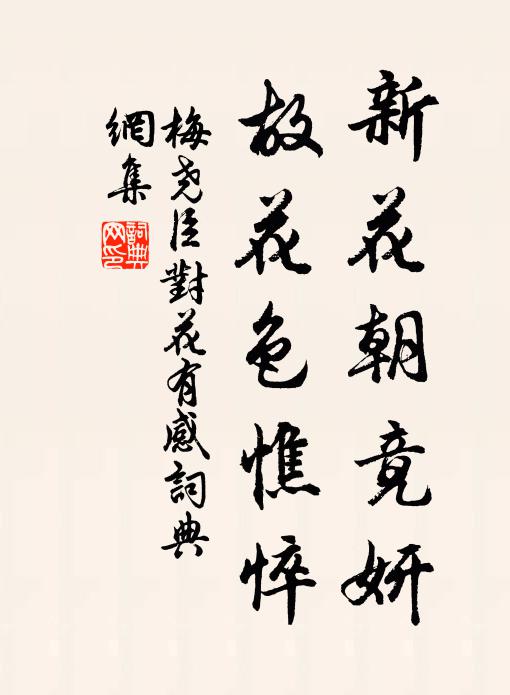 新花朝竟妍
故花色憔悴
梅堯臣對花有感詞典
網集
詞典
网印